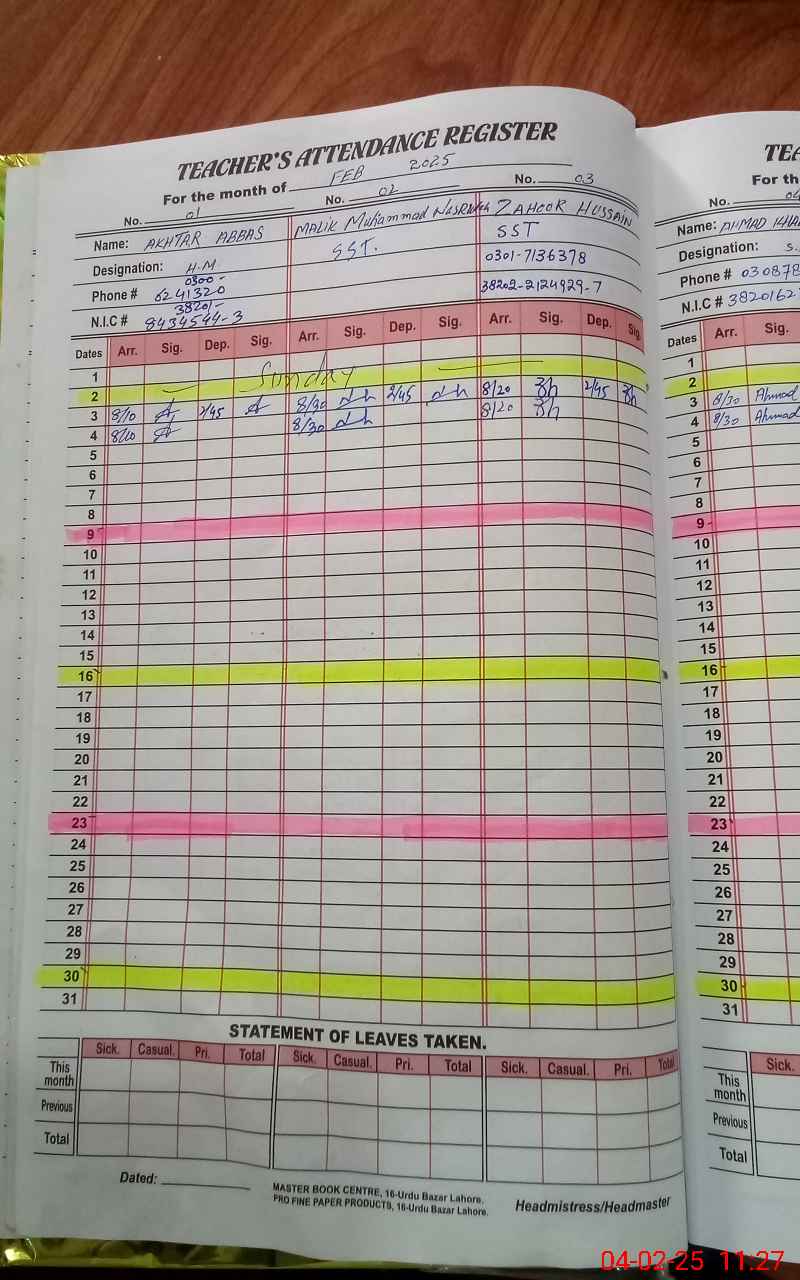 TEACHER'S ATTENDANCE REGISTER
For the month of FEB 2025
No. 01 No. 02 No. 03
Name: AKHTAR ABBAS MALIK Muhammad ZAHOOR HUSSAIN
Designation: H.M SST. SST
Phone # 0300- 6241320 0301-7136378
N.I.C # 38201- 8434544-3 38202-2124929-7
Dates Arr. Sig. Dep. Sig. Arr. Sig. Dep. Sig. Arr. Sig. Dep. Sig.
1
2 Sunday
3 8/10 2/45 8/30 2/45 8/20 2/45
4 8/10 8/30 8/20
5
6
7
8
9
10
11
12
13
14
15
16
17
18
19
20
21
22
23
24
25
26
27
28
29
30
31
STATEMENT OF LEAVES TAKEN.
Sick. Casual. Pri. Total Sick. Casual. Pri. Total Sick. Casual. Pri. Total
This month
Previous
Total
Dated:
MASTER BOOK CENTRE, 16-Urdu Bazar Lahore.
PRO FINE PAPER PRODUCTS, 16-Urdu Bazar Lahore.
Headmistress/Headmaster
TEA
For th
No. 04
Name: AHMAD KHA
Designation: S.
Phone # 030878
N.I.C # 3820162
Dates Arr. Sig.
1
2
3 8/30 Ahmad
4 8/30 Ahmad
5
6
7
8
9
10
11
12
13
14
15
16
17
18
19
20
21
22
23
24
25
26
27
28
29
30
31
Sick.
This month
Previous
Total
04-02-25 11:27